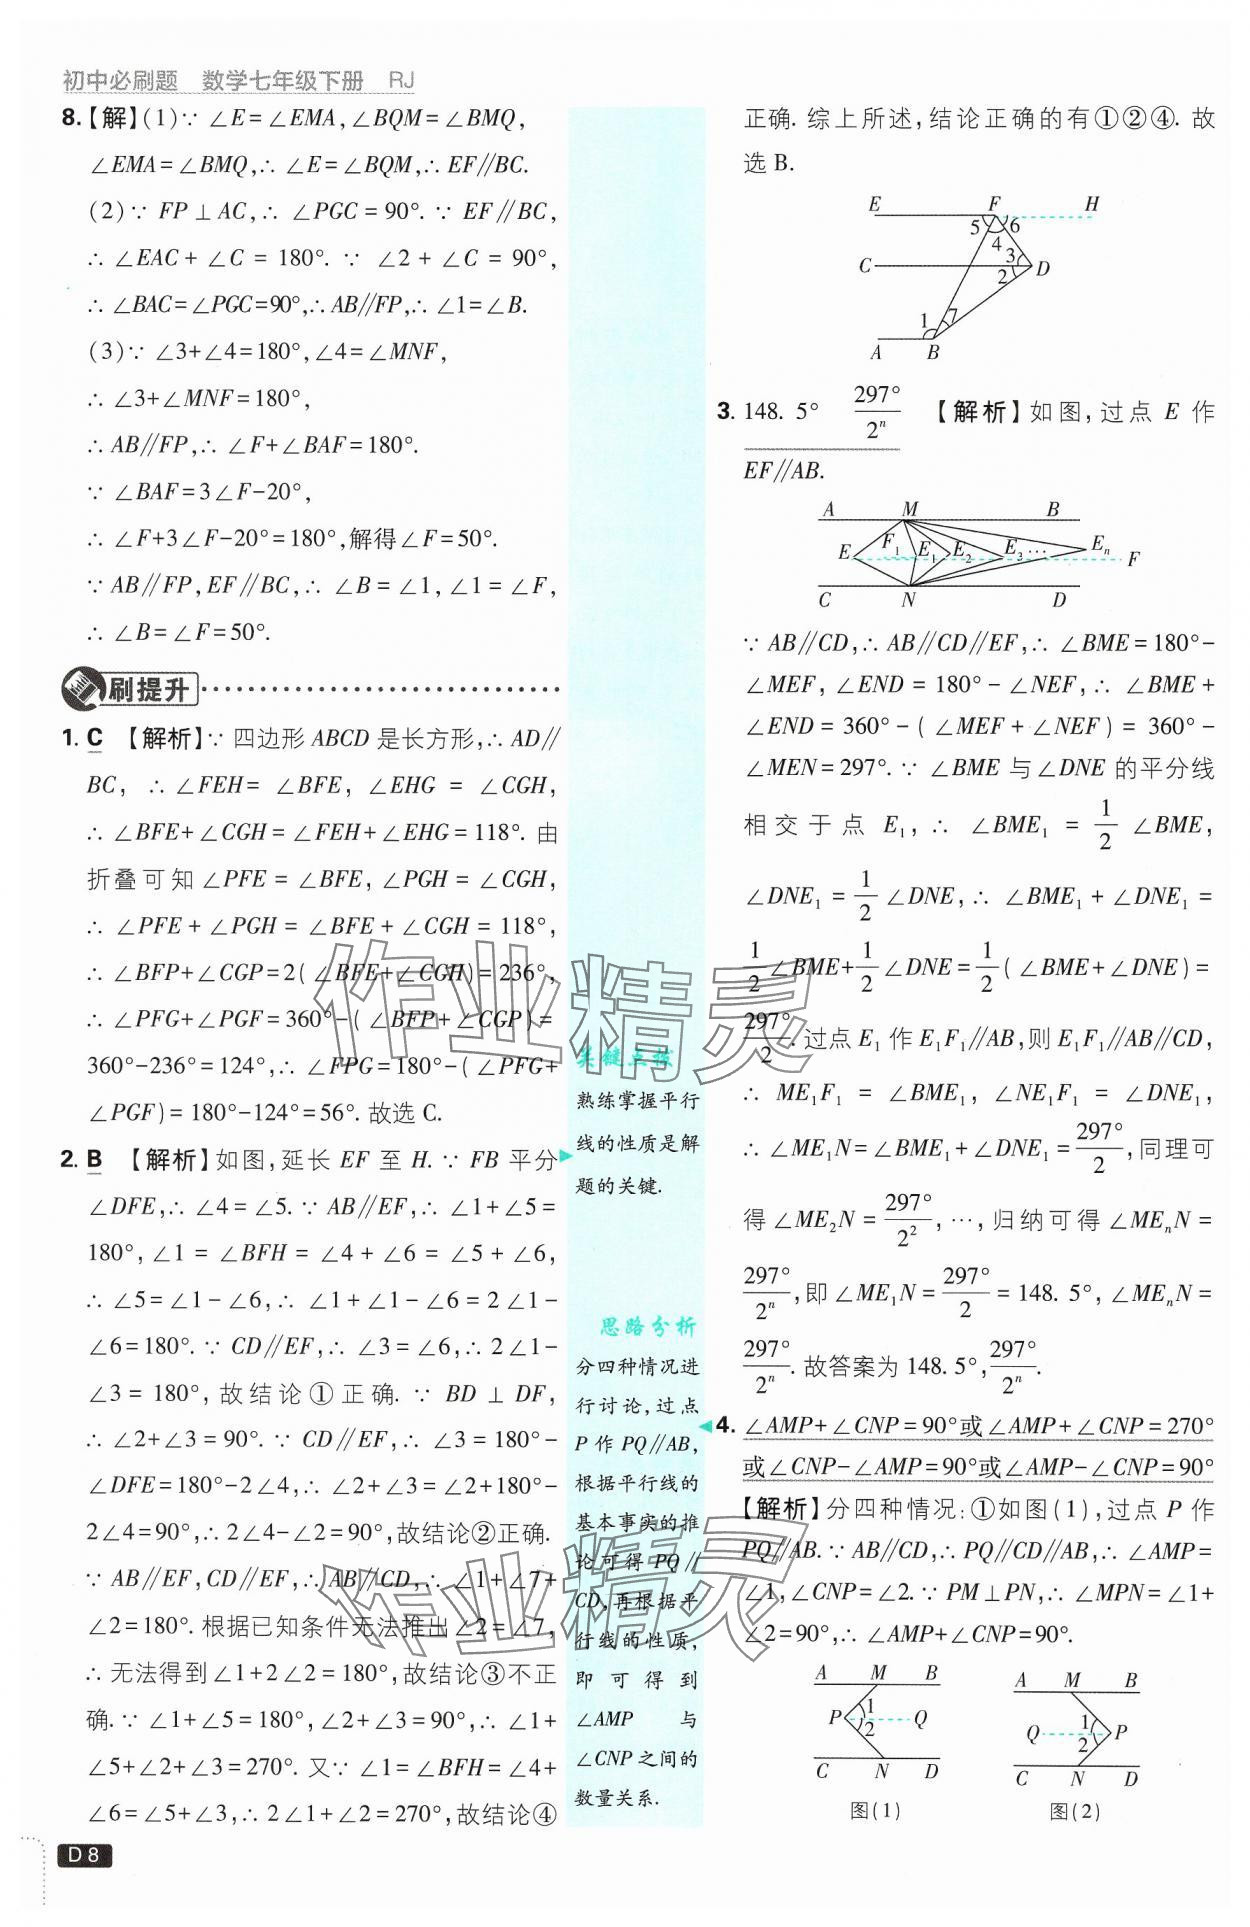 初中必刷题 数学七年级下册 RJ
8.【解】(1)∵ ∠E=∠EMA,∠BQM=∠BMQ,
∠EMA=∠BMQ,∴ ∠E=∠BQM,∴ EF∥BC.
(2)∵ FP⊥AC,∴ ∠PGC=90°.∵ EF∥BC,
∴ ∠EAC+∠C=180°.∵ ∠2+∠C=90°,
∴ ∠BAC=∠PGC=90°,∴ AB∥FP,∴ ∠1=∠B.
(3)∵ ∠3+∠4=180°,∠4=∠MNF,
∴ ∠3+∠MNF=180°,
∴ AB∥FP,∴ ∠F+∠BAF=180°.
∵ ∠BAF=3∠F-20°,
∴ ∠F+3∠F-20°=180°,解得∠F=50°.
∵ AB∥FP,EF∥BC,∴ ∠B=∠1,∠1=∠F,
∴ ∠B=∠F=50°.
刷提升
1. C 【解析】∵ 四边形 ABCD 是长方形,∴ AD∥
BC, ∴ ∠FEH=∠BFE, ∠EHG=∠CGH,
∴ ∠BFE+∠CGH=∠FEH+∠EHG=118°. 由
折叠可知∠PFE=∠BFE,∠PGH=∠CGH,
∴ ∠PFE+∠PGH=∠BFE+∠CGH=118°,
∴ ∠BFP+∠CGP=2(∠BFE+∠CGH)=236°,
∴ ∠PFG+∠PGF=360°-(∠BFP+∠CGP)=
360°-236°=124°,∴ ∠FPG=180°-(∠PFG+
∠PGF)=180°-124°=56°. 故选 C.
2. B 【解析】如图,延长 EF 至 H.∵ FB 平分
∠DFE,∴ ∠4=∠5.∵ AB∥EF,∴ ∠1+∠5=
180°,∠1=∠BFH=∠4+∠6=∠5+∠6,
∴ ∠5=∠1-∠6,∴ ∠1+∠1-∠6=2∠1-
∠6=180°.∵ CD∥EF,∴ ∠3=∠6,∴ 2∠1-
∠3=180°,故结论①正确.∵ BD⊥DF,
∴ ∠2+∠3=90°.∵ CD∥EF,∴ ∠3=180°-
∠DFE=180°-2∠4,∴ ∠2+∠3=∠2+180°-
2∠4=90°,∴ 2∠4-∠2=90°,故结论②正确.
∵ AB∥EF,CD∥EF,∴ AB∥CD,∴ ∠1+∠7+
∠2=180°. 根据已知条件无法推出∠2=∠7,
∴ 无法得到∠1+2∠2=180°,故结论③不正
确.∵ ∠1+∠5=180°,∠2+∠3=90°,∴ ∠1+
∠5+∠2+∠3=270°. 又∵ ∠1=∠BFH=∠4+
∠6=∠5+∠3,∴ 2∠1+∠2=270°,故结论④
D 8
关键点拨
熟练掌握平行
线的性质是解
题的关键.
思路分析
分四种情况进
行讨论,过点
P 作 PQ∥AB,
根据平行线的
基本事实的推
论可得 PQ∥
CD,再根据平
行线的性质,
即可得到
∠AMP 与
∠CNP 之间的
数量关系.
正确. 综上所述,结论正确的有①②④. 故
选 B.
E F H
5 6
4
C 3 D
2
1 7
A B
3. 148.5° 297°/2ⁿ 【解析】如图,过点 E 作
EF∥AB.
A M B
E F₁ E₁ E₂ E₃ … Eₙ F
C N D
∵ AB∥CD,∴ AB∥CD∥EF,∴ ∠BME=180°-
∠MEF,∠END=180°-∠NEF,∴ ∠BME+
∠END=360°-(∠MEF+∠NEF)=360°-
∠MEN=297°.∵ ∠BME 与∠DNE 的平分线
相交于点 E₁,∴ ∠BME₁=1/2∠BME,
∠DNE₁=1/2∠DNE,∴ ∠BME₁+∠DNE₁=
1/2∠BME+1/2∠DNE=1/2(∠BME+∠DNE)=
297°/2. 过点 E₁ 作 E₁F₁∥AB,则 E₁F₁∥AB∥CD,
∴ ∠ME₁F₁=∠BME₁,∠NE₁F₁=∠DNE₁,
∴ ∠ME₁N=∠BME₁+∠DNE₁=297°/2,同理可
得∠ME₂N=297°/2²,…,归纳可得∠MEₙN=
297°/2ⁿ,即∠ME₁N=297°/2=148.5°,∠MEₙN=
297°/2ⁿ. 故答案为 148.5°,297°/2ⁿ.
4. ∠AMP+∠CNP=90°或∠AMP+∠CNP=270°
或∠CNP-∠AMP=90°或∠AMP-∠CNP=90°
【解析】分四种情况:①如图(1),过点 P 作
PQ∥AB.∵ AB∥CD,∴ PQ∥CD∥AB,∴ ∠AMP=
∠1,∠CNP=∠2.∵ PM⊥PN,∴ ∠MPN=∠1+
∠2=90°,∴ ∠AMP+∠CNP=90°.
A M B
P 1 2 Q
C N D
图(1)
A M B
Q 1 2 P
C N D
图(2)
作业精灵
作业精灵